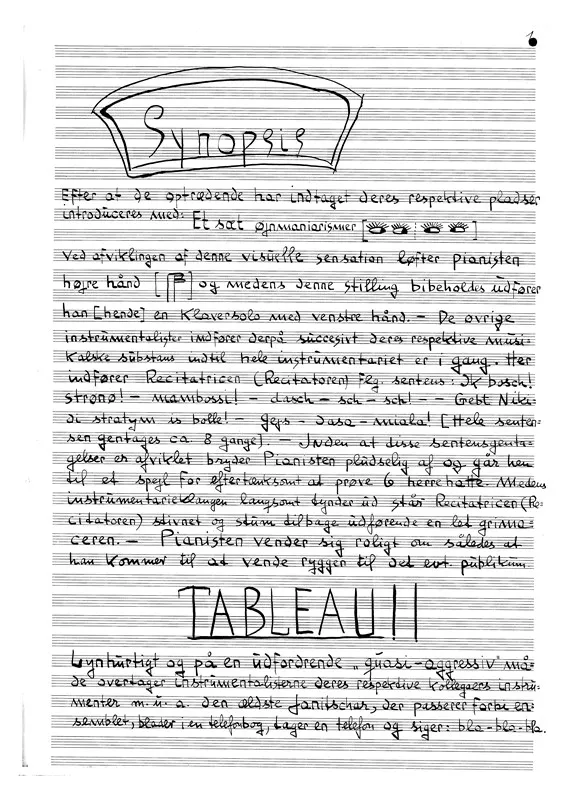 1
Synopsis
Efter at de optrædende har indtaget deres respektive pladser
introduceres med: Et sæt øjnmaniarismer [ : ]
Ved afviklingen af denne visuelle sensation løfter pianisten
højre hånd [ ] og medens denne stilling bibeholdes udfører
han [hende] en klaversolo med venstre hånd. – De øvrige
instrumentalister indfører derpå succesivt deres respektive musi-
kalske substans indtil hele instrumentariet er i gang. Her
indfører Recitatricen (Recitatoren) flg. sentens: Ik bosch!
strønø! – mambossi! – dasch – sch – sch! – – Gebt Niki-
di stratym is bolle! – gejs – dasa – miala! [Hele senten-
sen gentages ca. 8 gange]. – Inden at disse sentensgenta-
gelser er afviklet bryder Pianisten pludselig af og går hen
til et spejl for eftertænksomt at prøve 6 herrehatte. Medens
instrumentarieklangen langsomt tynder ud står Recitatricen (Re-
citatoren) stivnet og stum tilbage udførende en let grima-
ceren. – Pianisten vender sig roligt om således at
han kommer til at vende ryggen til det evt. publikum.
TABLEAU!!
Lynhurtigt og på en udfordrende „quasi-aggressiv" må-
de overtager instrumentalisterne deres respektive kollegaers instru-
menter m. u. a. den ældste janitschar, der passerer forbi en-
semblet, blader i en telefonbog, tager en telefon og siger: bla-bla-bla.